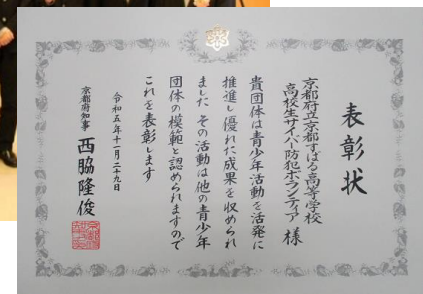 表彰状
京都府立京都すばる高等学校
高校生サイバー防犯ボランティア 様
貴団体は青少年活動を活発に
推進し優れた成果を収められ
ました その活動は他の青少年
団体の模範と認められますので
これを表彰します
令和五年十一月二十九日
京都府知事 西脇隆俊